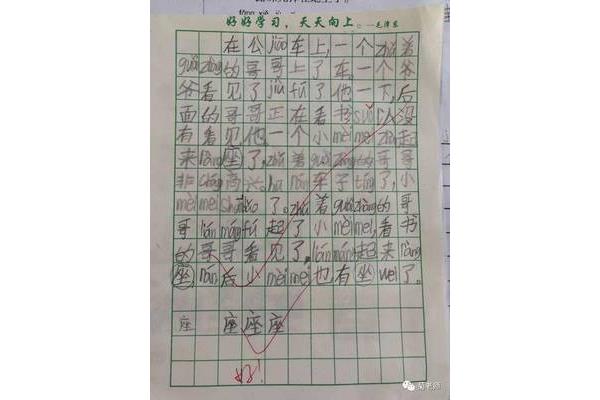 好好学习，天天向上。——毛泽东
在公jiāo车上，一个zhǔ着
guǎi zhàng的哥哥上了车。一个爷
爷看见了jiù fú了他一下，后
面的哥哥正在看书suǒ以没
有看见他一个小mèi mei zhàn起
来ràng座了。zhǔ着guǎi zhàng的哥哥
非cháng高兴。
车子tíng了，小
mèi mei
了。zhǔ着guǎi zhàng的哥
哥lián máng fú起了小mèi mei，看书
的哥哥看见了，lián máng起来ràng
坐，rán后小mèi mei也有坐wèi了。
座 座座座
好！
菊老师